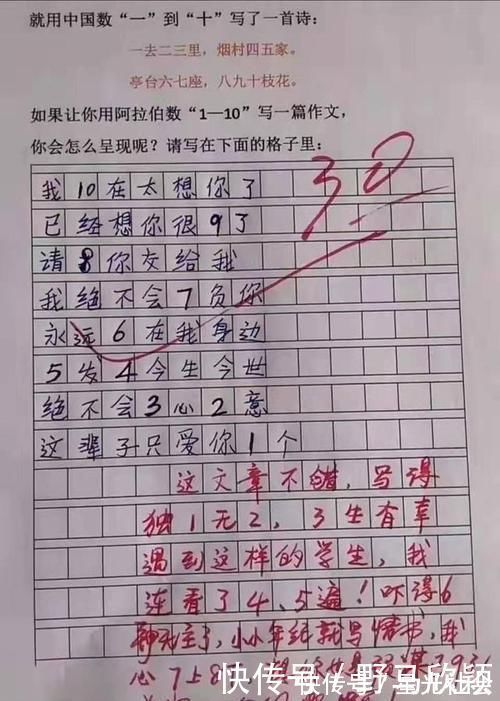 就用中国数“一”到“十”写了一首诗：
一去二三里，烟村四五家。
亭台六七座，八九十枝花。
如果让你用阿拉伯数“1—10”写一篇作文，
你会怎么呈现呢？请写在下面的格子里：
30
我10在太想你了
已经想你很9了
请8你交给我
我绝不会7负你
永远6在我身边
5发4今生今世
绝不会3心2意
这辈子只爱你1个
这文章不错，写得
独1无2，3生有幸
遇到这样的学生，我
连看了4、5遍！吓得6
神无主了，小小年纪就写情书，我
心7上8
快传号